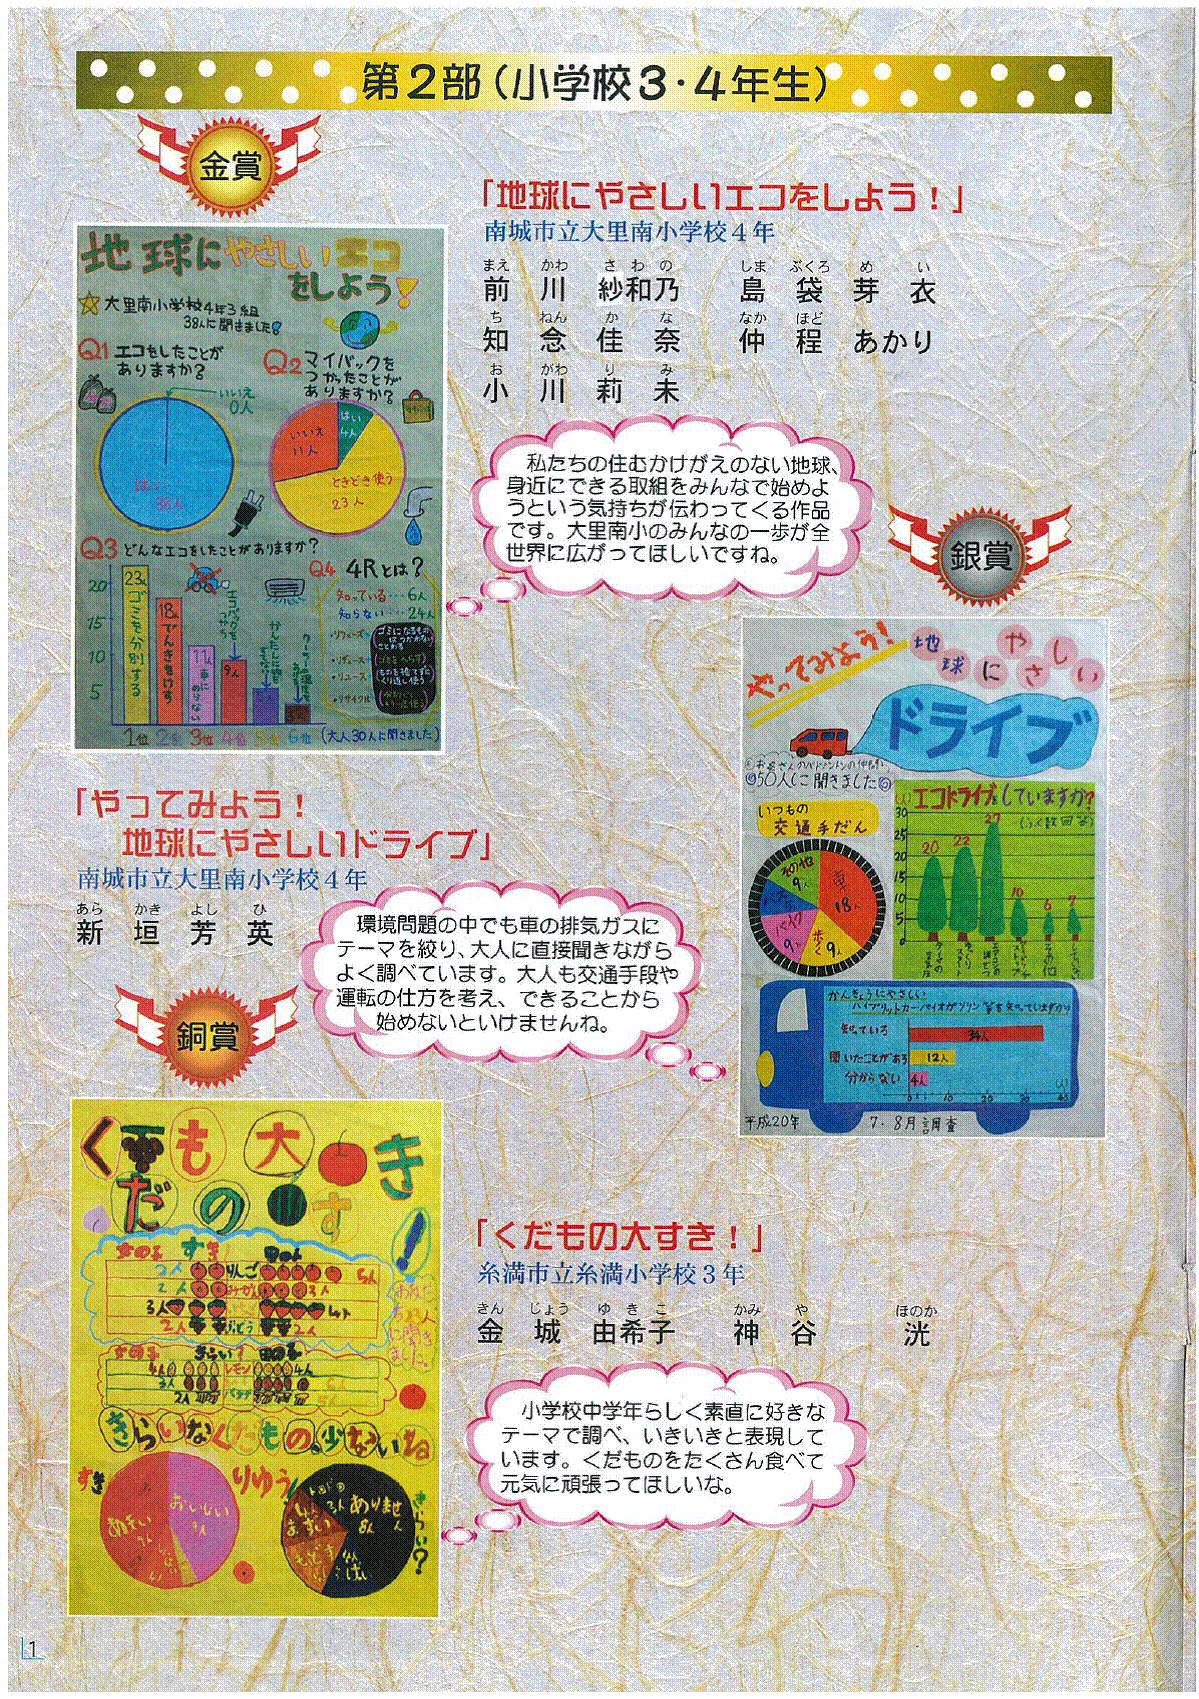 第2部(小学校3・4年生)
金賞
「地球にやさしいエコをしよう！」
南城市立大里南小学校4年
まえ かわ さ わ の しま ぶくろ め い
前川 紗和乃 島袋 芽衣
ち ねん か な なか ほど
知念 佳奈 仲程 あかり
お がわ り み
小川 莉未
地球にやさしいエコ
をしよう!
大里南小学校4年3組
38人に聞きました!
Q1 エコをしたことが
ありますか?
いいえ
0人
はい
38人
Q2 マイバックを
つかったことが
ありますか?
はい
4人
いいえ
11人
ときどき使う
23人
Q3 どんなエコをしたことがありますか?
20
15
10
5
23人 ゴミを分別する
18人 でんきをけす
11人
9人
1位 2位 3位 4位 5位 6位 (大人30人に聞きました)
Q4 4Rとは?
知っている・・・6人
知らない・・・24人
・リフューズ
・リデュース
・リユース
・リサイクル
私たちの住むかけがえのない地球、
身近にできる取組をみんなで始めよ
うという気持ちが伝わってくる作品
です。大里南小のみんなの一歩が全
世界に広がってほしいですね。
銀賞
「やってみよう！
地球にやさしいドライブ」
南城市立大里南小学校4年
あら かき よし ひ
新垣 芳英
環境問題の中でも車の排気ガスに
テーマを絞り、大人に直接聞きながら
よく調べています。大人も交通手段や
運転の仕方を考え、できることから
始めないといけませんね。
やってみよう!
地球にやさしい
ドライブ
50人に聞きました
いつもの
交通手だん
車
18人
歩く
9人
バイク
9人
その他
9人
エコドライブをしていますか?
(ふく数回答)
30
25
20
15
10
5
0
20 22 27 10 6 7
かんきょうにやさしい
ハイブリットカー・バイオガソリン等を知っていますか?
知っている
34人
聞いたことがある
12人
分からない
4人
0 10 20 30
平成20年 7・8月調査
銅賞
「くだもの大すき！」
糸満市立糸満小学校3年
きん じょう ゆ き こ かみ や ほのか
金城 由希子 神谷 洸
くだもの大すき!
女の子 すき
りんご 5人
2人 みかん 3人
3人
2人 ぶどう 2人
きらい?
4人 レモン 4人
3人
2人
きらいなくだもの少ないね
すき りゆう きらい?
おいしい
あまい
ありません
8人
まずい
小学校中学年らしく素直に好きな
テーマで調べ、いきいきと表現して
います。くだものをたくさん食べて
元気に頑張ってほしいな。
1